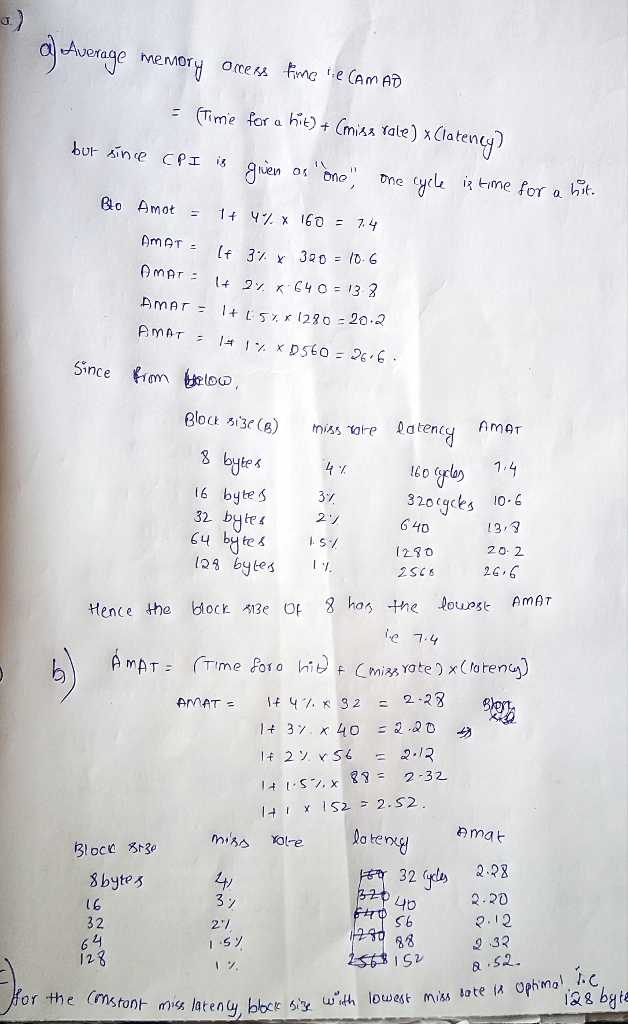 a)
a) Average memory access time i.e (AMAT)
= (Time for a hit) + (miss rate) x (latency)
but since CPI is given as "one", one cycle is time for a hit.
Amat = 1+ 4% x 160 = 7.4
AMAT = 1+ 3% x 320 = 10.6
AMAT = 1+ 2% x 640 = 13.8
AMAT = 1+ 1.5% x 1280 = 20.2
AMAT = 1+ 1% x 2560 = 26.6.
Since from below,
Block size (B) miss rate latency AMAT
8 bytes 4% 160 cycles 7.4
16 bytes 3% 320 cycles 10.6
32 bytes 2% 640 13.8
64 bytes 1.5% 1280 20.2
128 bytes 1% 2560 26.6
Hence the block size of 8 has the lowest AMAT
i.e 7.4
b) AMAT = (Time for a hit) + (miss rate) x (latency)
AMAT = 1+ 4% x 32 = 2.28
1+ 3% x 40 = 2.20
1+ 2% x 56 = 2.12
1+ 1.5% x 88 = 2.32
1+ 1 x 152 = 2.52.
Block size miss rate latency Amat
8bytes 4% 32 cycles 2.28
16 3% 40 2.20
32 2% 56 2.12
64 1.5% 88 2.32
128 1% 152 2.52.
c) for the constant miss latency, block size with lowest miss rate is optimal i.e
128 byte